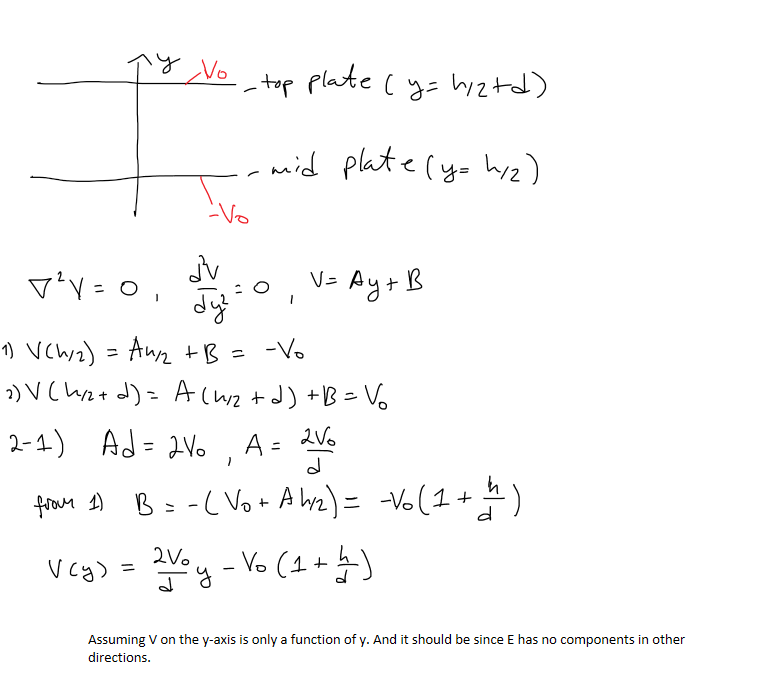 y
V₀
- top plate ( y = h/2+d)
- mid plate (y = h/2)
-V₀
∇²V = 0 , d²V/dy² = 0 , V = Ay + B
1) V(h/2) = Ah/2 + B = -V₀
2) V(h/2 + d) = A(h/2 + d) + B = V₀
2-1) Ad = 2V₀ , A = 2V₀/d
from 1) B = -(V₀ + Ah/2) = -V₀(1 + h/d)
V(y) = 2V₀/d y - V₀(1 + h/d)
Assuming V on the y-axis is only a function of y. And it should be since E has no components in other
directions.